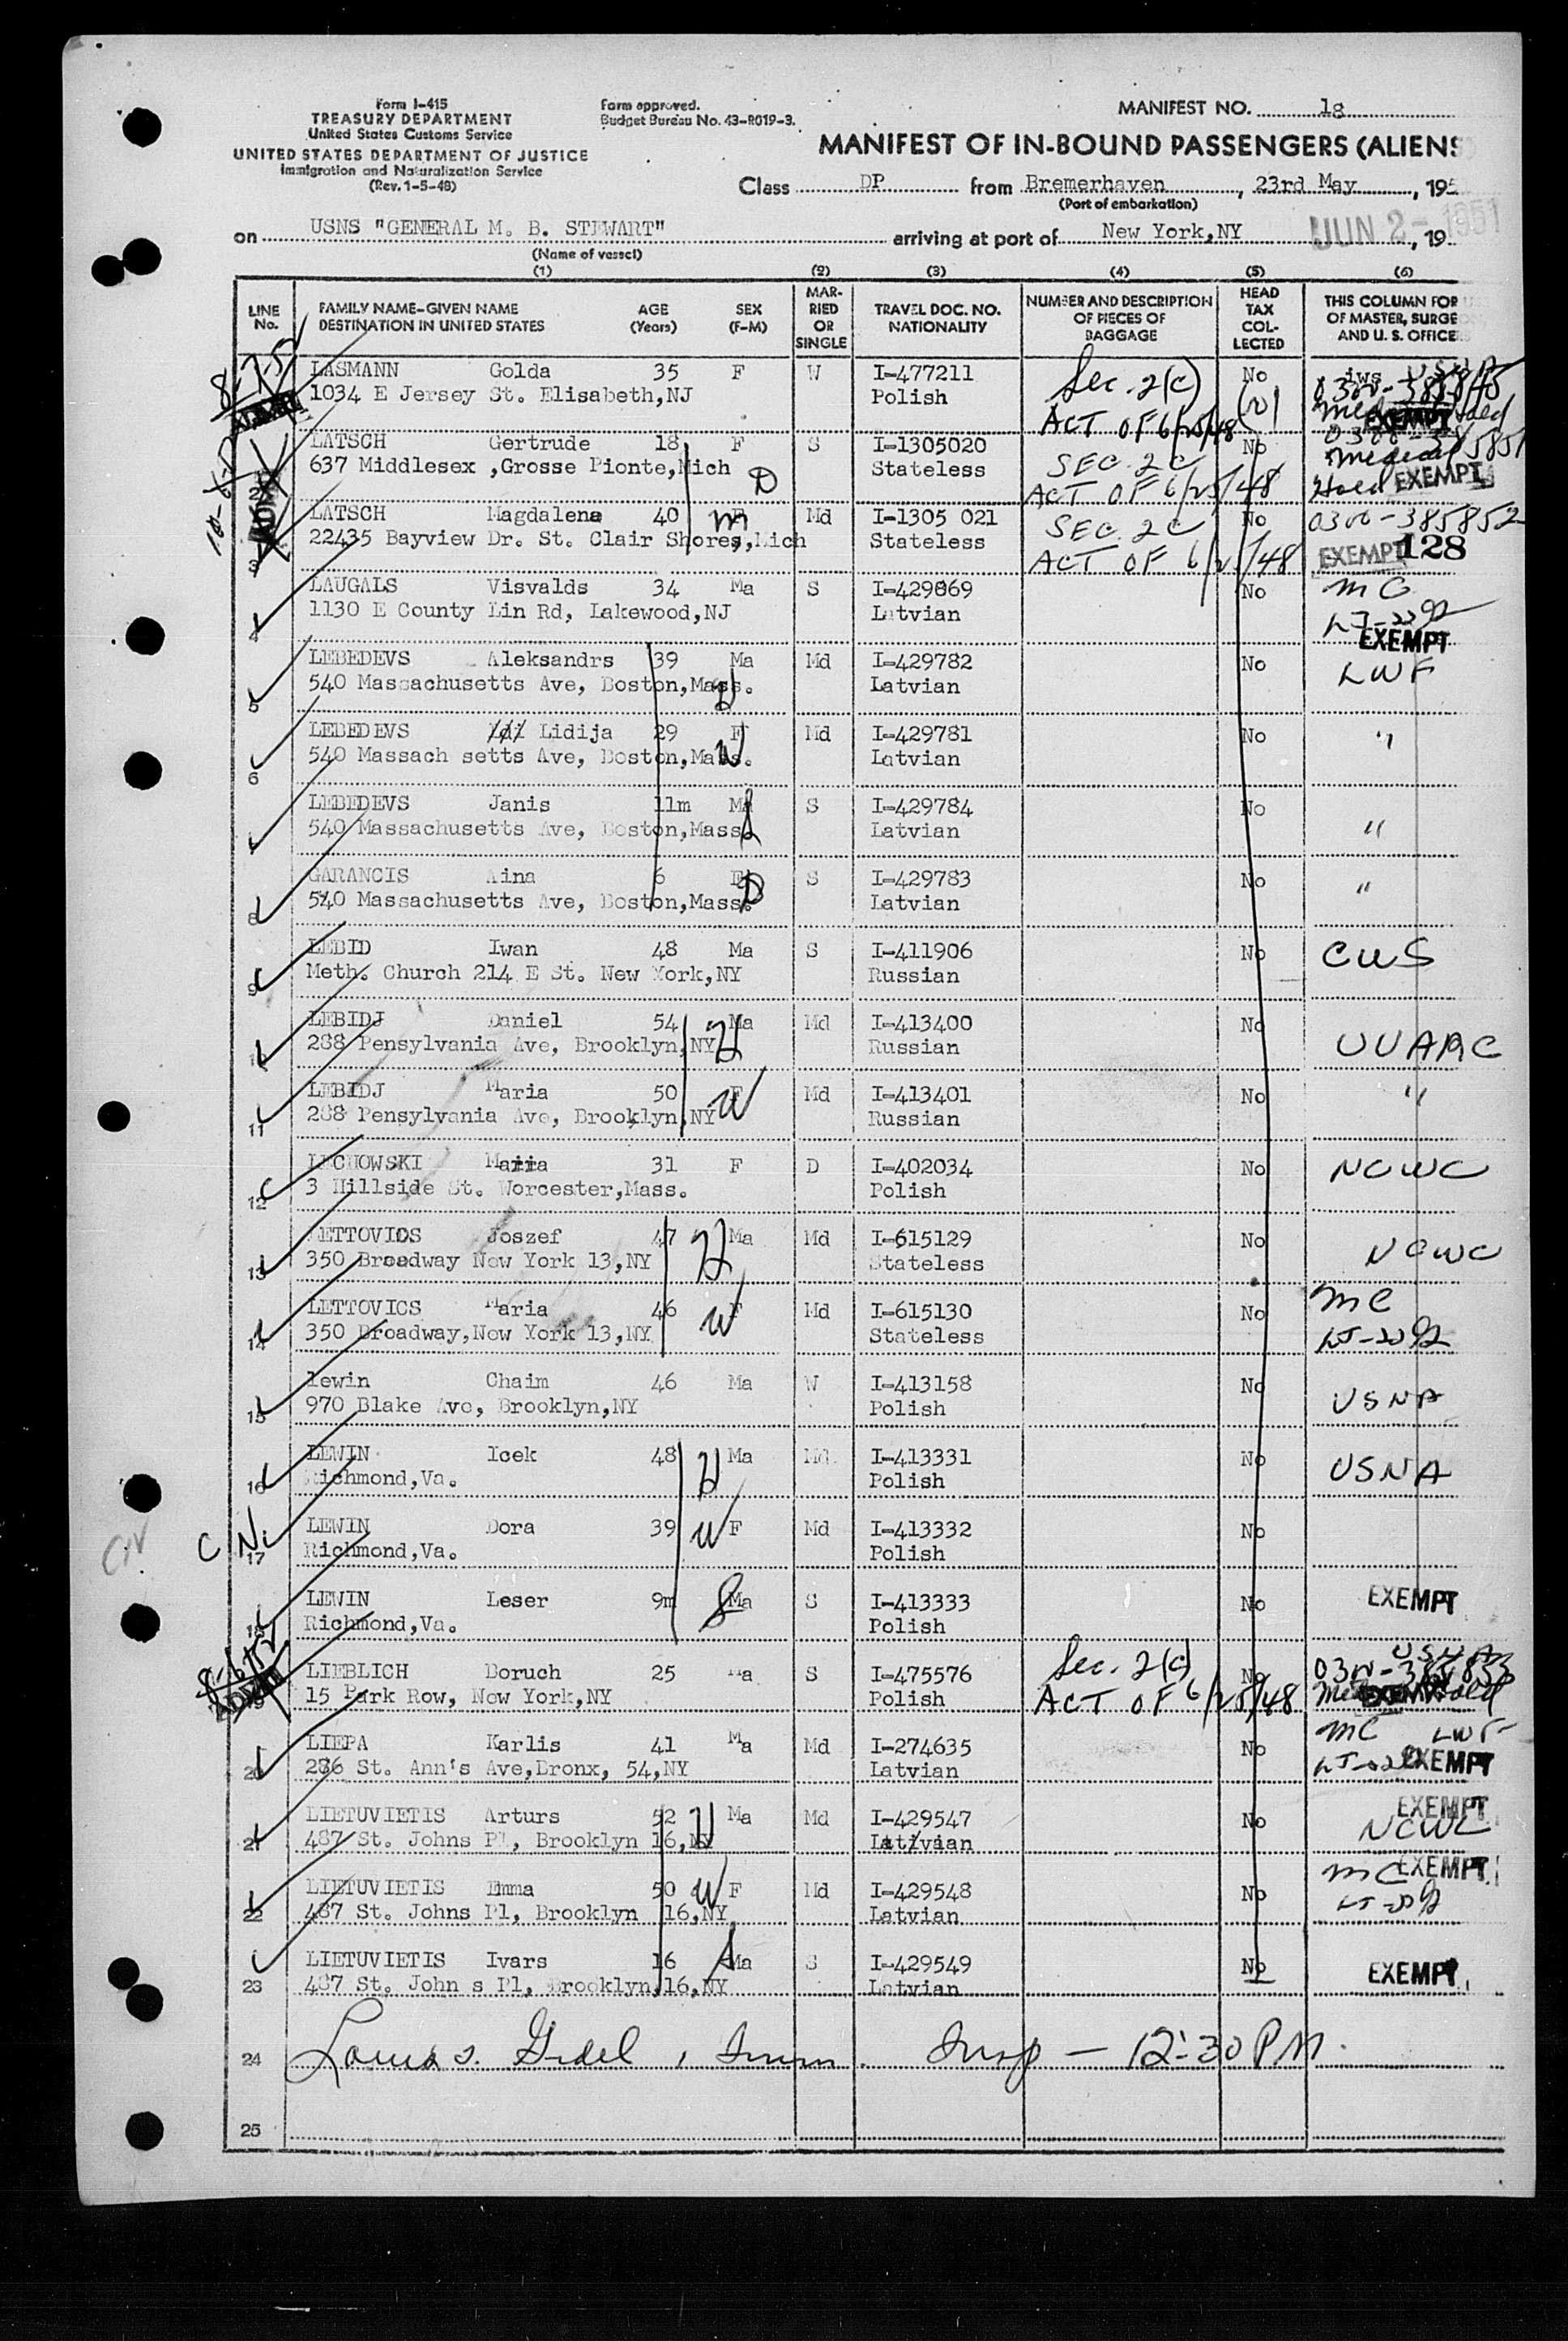 Form I-415
TREASURY DEPARTMENT
United States Customs Service
UNITED STATES DEPARTMENT OF JUSTICE
Immigration and Naturalization Service
(Rev. 1-5-48)
Form approved.
Budget Bureau No. 43-R019-3.
MANIFEST NO. 1g
MANIFEST OF IN-BOUND PASSENGERS (ALIENS
Class DP from Bremerhaven, 23rd May, 195
(Port of embarkation)
on USNS "GENERAL M. B. STEWART" arriving at port of New York,NY JUN 2- 1951, 19
(Name of vessel)
(1) (2) (3) (4) (5) (6)
LINE No. FAMILY NAME-GIVEN NAME DESTINATION IN UNITED STATES AGE (Years) SEX (F-M) MARRIED OR SINGLE TRAVEL DOC. NO. NATIONALITY NUMBER AND DESCRIPTION OF PIECES OF BAGGAGE HEAD TAX COLLECTED THIS COLUMN FOR OF MASTER, SURGE AND U. S. OFFICE
8-7-52 LASMANN Golda 35 F W I-477211 Sec. 2(c) No iws USNA
1034 E Jersey St. Elisabeth,NJ Polish ACT OF 6/25/48 0300-385845 EXEMPT
LATSCH Gertrude 18 F S I-1305020 SEC. 2C No 0300-385851
2 637 Middlesex ,Grosse Pionte,Mich D Stateless ACT OF 6/25/48 Medical Hold EXEMPT
LATSCH Magdalena 40 F m Md I-1305 021 SEC. 2C No 0300-385852
3 22435 Bayview Dr. St. Clair Shores,Mich Stateless ACT OF 6/25/48 EXEMPT 128
LAUGALS Visvalds 34 Ma S I-429869 No MC
4 1130 E County Lin Rd, Lakewood,NJ Latvian EXEMPT
LEBEDEVS Aleksandrs 39 Ma Md I-429782 No LWF
5 540 Massachusetts Ave, Boston,Mass. H Latvian
LEBEDEVS Lidija 29 F Md I-429781 No "
6 540 Massach setts Ave, Boston,Mass. W Latvian
LEBEDEVS Janis 11m Ma S I-429784 No "
540 Massachusetts Ave, Boston,Mass. Latvian
GARANCIS Aina 6 F S I-429783 No "
8 540 Massachusetts Ave, Boston,Mass. D Latvian
LEBID Iwan 48 Ma S I-411906 No CWS
9 Meth. Church 214 E St. New York,NY Russian
LEBIDJ Daniel 54 Ma Md I-413400 No
288 Pensylvania Ave, Brooklyn,NY H Russian UUARC
LEBIDJ Maria 50 F Md I-413401 No "
11 288 Pensylvania Ave, Brooklyn,NY W Russian
LECHOWSKI Maria 31 F D I-402034 No NCWC
12 3 Hillside St. Worcester,Mass. Polish
LETTOVICS Joszef 47 H Ma Md I-615129 No NCWC
13 350 Broadway New York 13,NY Stateless
LETTOVICS Maria 46 F Md I-615130 No MC
14 350 Broadway,New York 13,NY W Stateless
lewin Chaim 46 Ma W I-413158 No USNA
15 970 Blake Ave, Brooklyn,NY Polish
LEWIN Icek 48 H Ma Md I-413331 No USNA
16 Richmond,Va. Polish
C N. LEWIN Dora 39 W F Md I-413332 No
17 Richmond,Va. Polish
LEWIN Leser 9m S Ma S I-413333 No EXEMPT
18 Richmond,Va. Polish
LIEBLICH Boruch 25 Ma S I-475576 Sec. 2(c) No USNA
19 15 Park Row, New York,NY Polish ACT OF 6/25/48 0300-385853 EXEMPT
LIEPA Karlis 41 Ma Md I-274635 No MC LWF
20 286 St. Ann's Ave,Bronx, 54,NY Latvian EXEMPT
LIETUVIETIS Arturs 52 H Ma Md I-429547 No EXEMPT
21 487 St. Johns Pl, Brooklyn 16,NY Latvian NCWC
LIETUVIETIS Emma 50 W F Md I-429548 No MC EXEMPT
22 487 St. Johns Pl, Brooklyn 16,NY Latvian
LIETUVIETIS Ivars 16 Ma S I-429549 No EXEMPT
23 487 St. John s Pl, Brooklyn,16,NY Latvian
24 Imm. Insp - 12:30 PM.
25